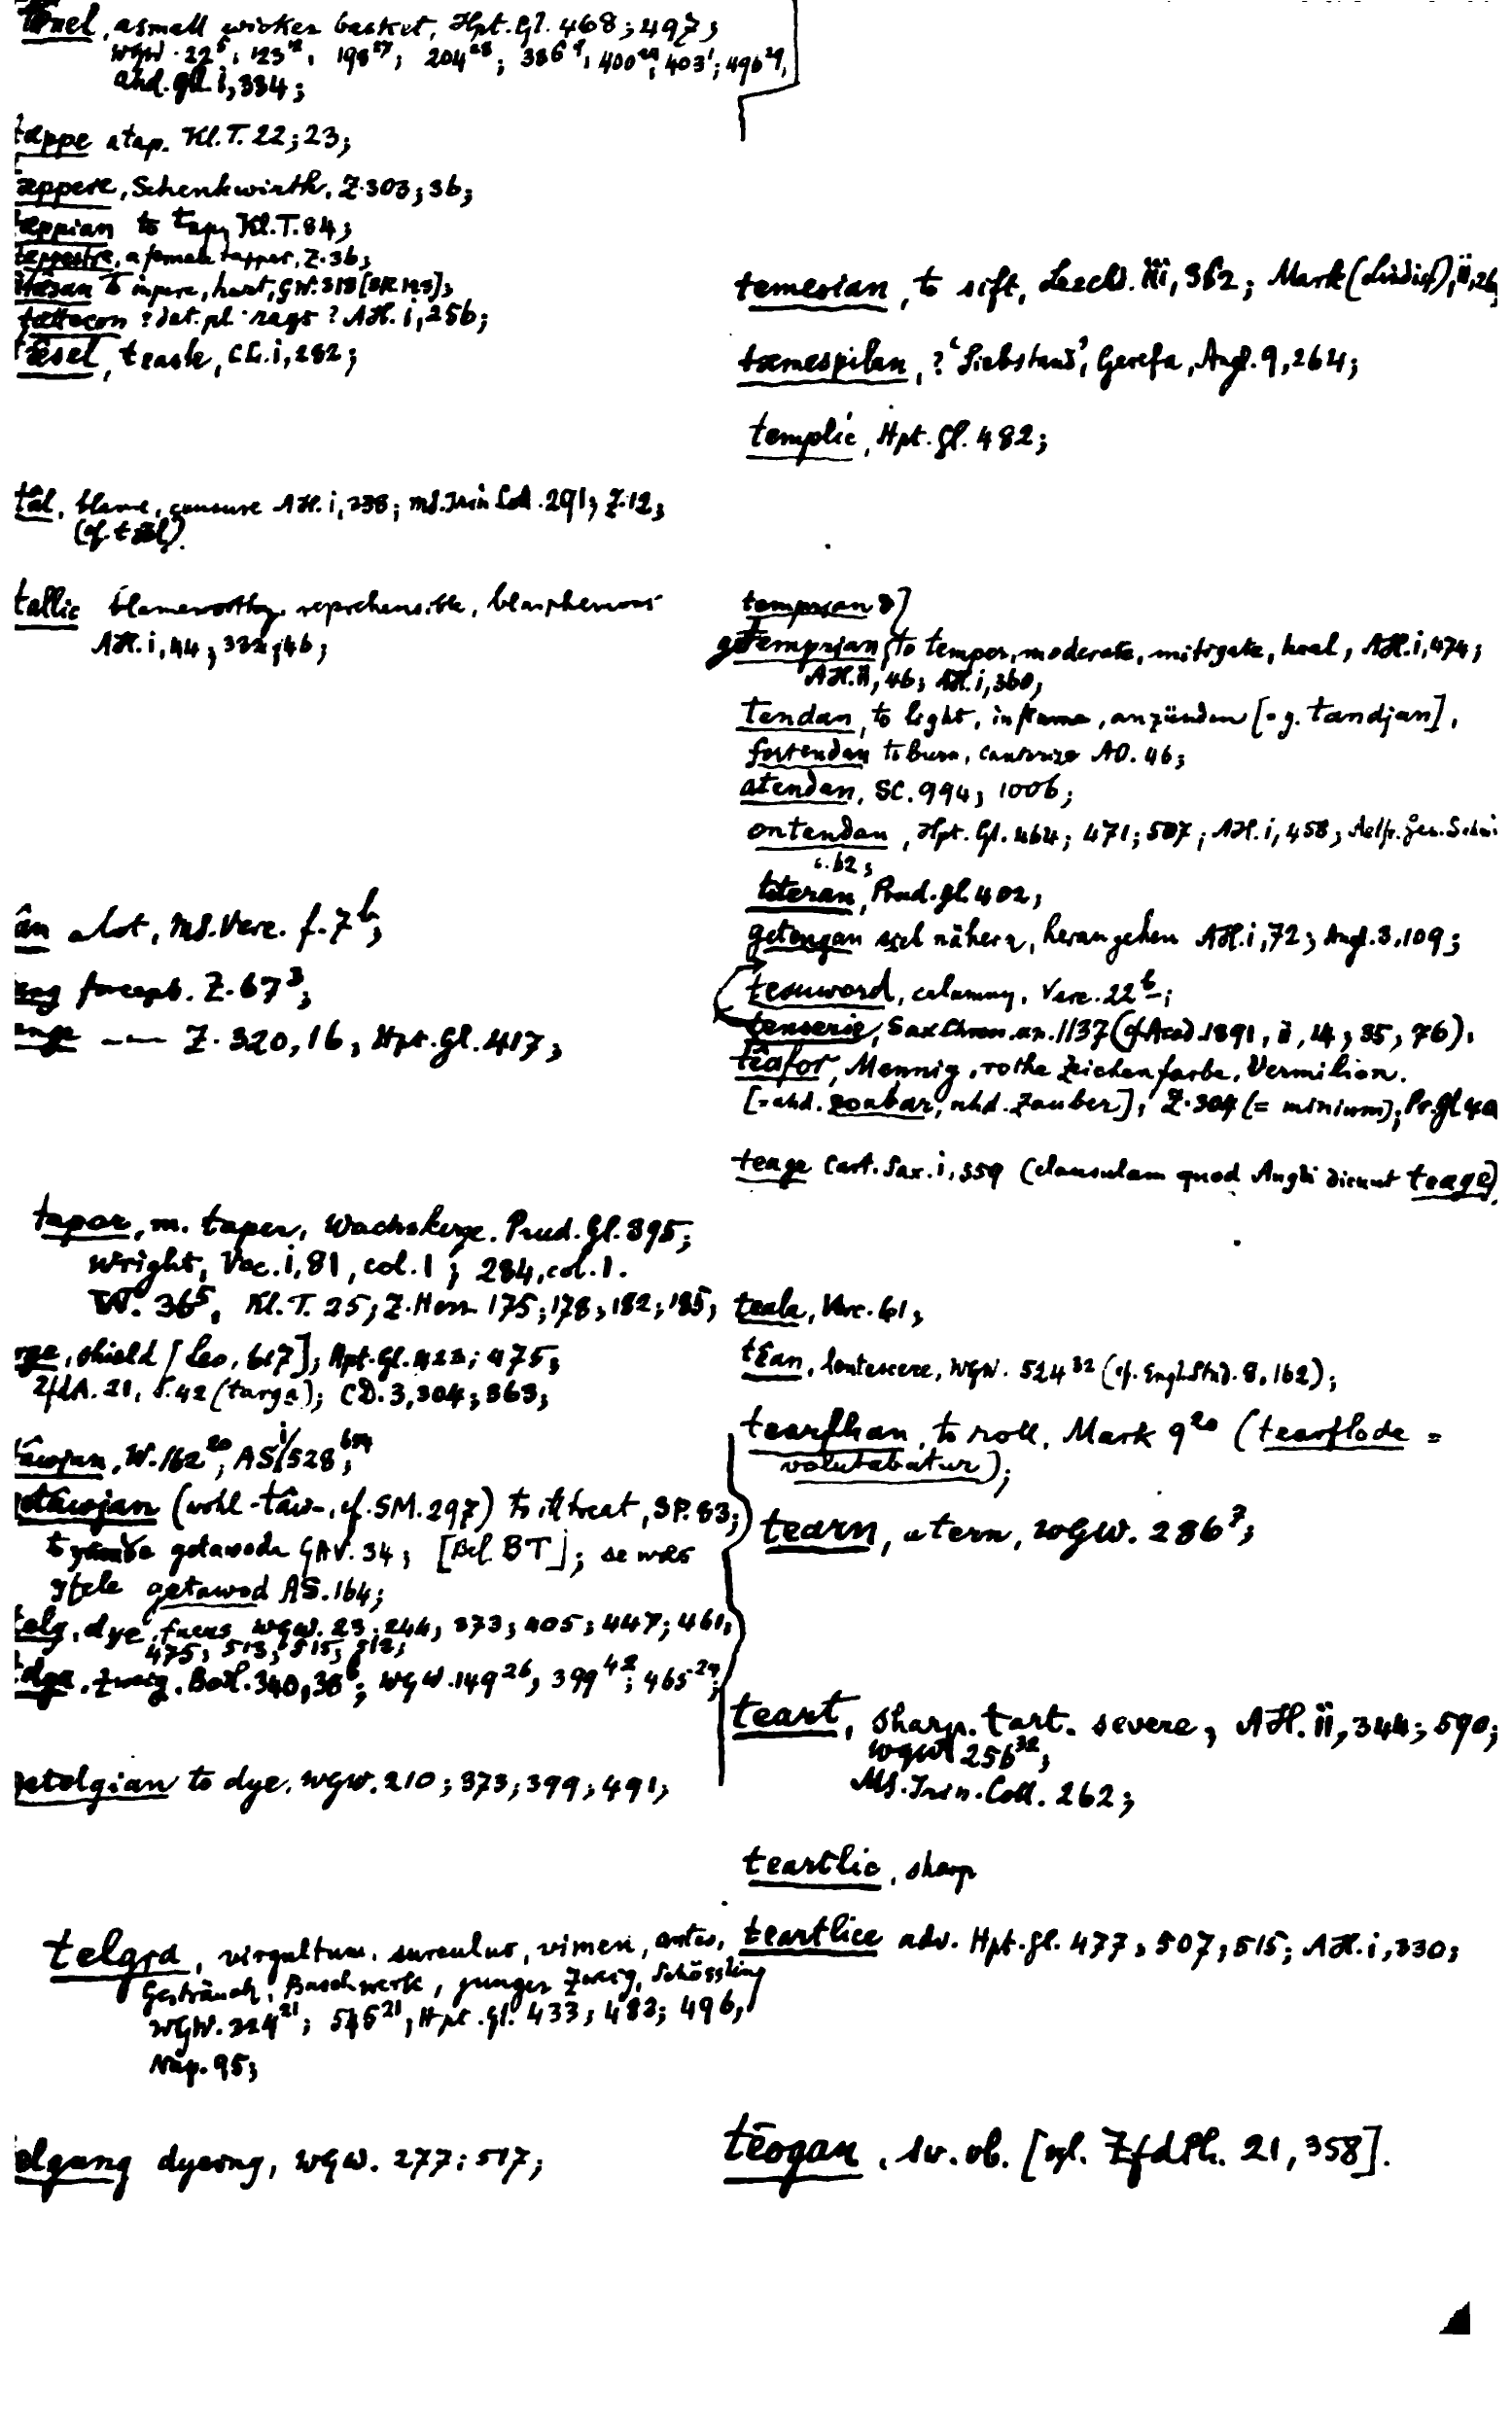 tǣnel, a small wicker basket, Hpt. Gl. 468; 497;
WGW. 22⁵; 123¹²; 198²⁷; 204²⁸; 386⁹; 400²⁹; 403¹; 496²⁹,
ahd. gll. i, 334;
tæppe a tap. Kl. T. 22; 23;
tæppere, Schenkwirth, Z. 303; 36;
tæppian to tap, Kl. T. 84;
tæppestre, a female tapper, Z. 36;
to injure, hurt, GW. 318
tættecon ? dat. pl. rags ? AH. i, 256;
tǣsel, teasle, CL. i, 282;
tâl, blame, censure AH. i, 238; MS. Trin Coll. 291; Z. 12;
(cf. tǣl).
tallic blameworthy, reprehensible, blasphemous
AH. i, 44; 332; 46;
ân a lot, MS. Verc. f. 7ᵇ;
ang forceps. Z. 67³;
ange —— Z. 320, 16; Hpt. Gl. 417;
tapor, m. taper, Wachskerze. Prud. Gl. 395;
Wright, Voc. i, 81, col. 1; 284, col. 1.
W. 36⁵, Kl. T. 25; Z. Hom 175; 178; 182; 185;
rge, shield [Leo, 617]; Hpt. Gl. 423; 475;
ZfdA. 21, S. 42 (targa); CD. 3, 304; 363;
tâwjan, W. 162²⁰; AS. 528;
getâwjan (wohl -tâw-, cf. SM. 297) to ill treat, SP. 83;
getawode GAV. 34; BT]; se wæs
yfele getawod AS. 164;
telg, dye, fucus WGW. 23; 244; 373; 405; 447; 461;
475; 513; 515; 512;
elga, Zweig. Boet. 340, 36; WGW. 149²⁶, 399⁴²; 465²⁹;
getelgian to dye. WGW. 210; 373; 399; 491;
telgra, virgultum, surculus, vimen, antes,
Gesträuch, Buschwerk, junger Zweig, Schössling
WGW. 224²¹; 545²¹; Hpt. Gl. 433; 482; 496,
Nap. 95;
elgung dyeing, WGW. 277; 517;
temesian, to sift, Leechd. iii, 362; Mark (Lindisf), ii, 26
tæmespilan, ? 'Siebstand', Gerefa, Angl. 9, 264;
templic, Hpt. Gl. 482;
temprian &]
getemprian, to temper, moderate, mitigate, heal, AH. i, 474;
AH. ii, 46; AH. i, 360;
tendan, to light, inflame, anzünden [= g. tandjan],
fortendan to burn, cauterize AO. 46;
atendan, SC. 994; 1006;
ontendan, Hpt. Gl. 464; 471; 507; AH. i, 458;
c. 62;
toteran, Prud. gl. 402;
getengan sich nähern, herangehen AH. i, 72; Angl. 3, 109;
teonword, calumny, Verc. 22ᵇ;
tenserie, Sax Chron. an. 1137 (cf Acad. 1891, ii, 14; 35, 76).
têafor, Mennig, rothe Zeichenfarbe, Vermilion.
[= ahd. zoubar, nhd. Zauber]; Z. 304 (= minium); Pr. gl 40
teage Cart. Sax. i, 359 (clausulam quod Angli dicunt teage)
teala, Verc. 61;
têan, lentescere, WGW. 524³² (cf. Engl. Stud. 8, 162);
tearflian, to roll, Mark 9²⁰ (tearflode =
volutabatur);
tearn, a tern, WGW. 286⁷;
teart, sharp, tart, severe, AH. ii, 344; 590;
WGW 256³²;
MS. Trin. Coll. 262;
teartlic, sharp
teartlice adv. Hpt. Gl. 477; 507; 515; AH. i, 330;
tēogan, sw. vb. [vgl. ZfdPh. 21, 358].